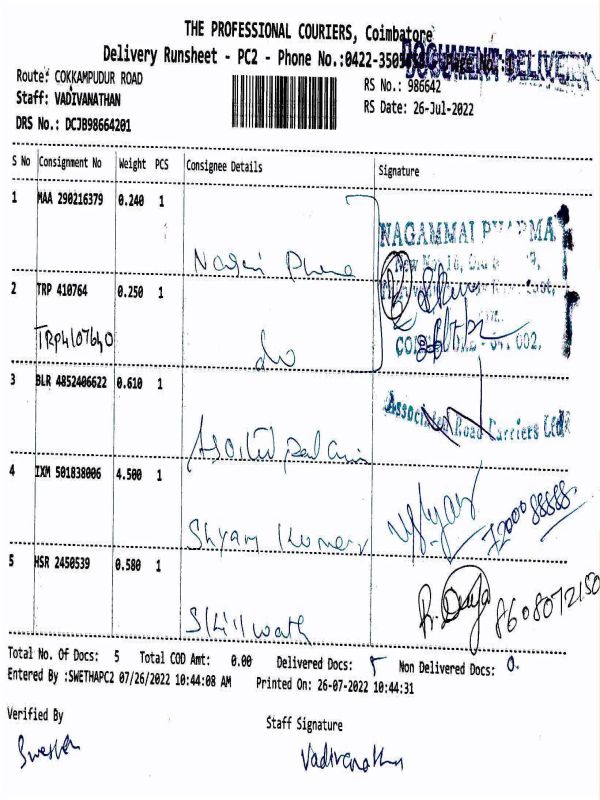 THE PROFESSIONAL COURIERS, Coimbatore
Delivery Runsheet - PC2 - Phone No.:0422-350
DOCUMENT DELIVERY
Route: COKKAMPUDUR ROAD
RS No.: 986642
Staff: VADIVANATHAN
RS Date: 26-Jul-2022
DRS No.: DCJB98664201
S No Consignment No Weight PCS Consignee Details Signature
1 MAA 290216379 0.240 1
NAGAMMAI PHARMA
2 TRP 410764 0.250 1
TRP4107640
do
002.
3 BLR 4852406622 0.610 1
Associated Road Carriers Ltd
4 IXM 501838006 4.500 1
Shyam Kumar
7200088888
5 HSR 2450539 0.580 1
8608072150
Skillwath
Total No. Of Docs: 5 Total COD Amt: 0.00 Delivered Docs: 5 Non Delivered Docs: 0.
Entered By :SWETHAPC2 07/26/2022 10:44:08 AM Printed On: 26-07-2022 10:44:31
Verified By Staff Signature
Swetha Vadivanathan